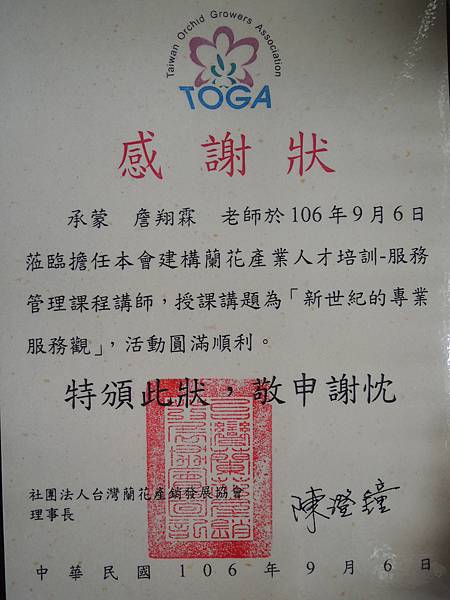 Taiwan Orchid Growers Association
TOGA
感謝狀
承蒙 詹翔霖 老師於106年9月6日
蒞臨擔任本會建構蘭花產業人才培訓-服務
管理課程講師，授課講題為「新世紀的專業
服務觀」，活動圓滿順利。
特頒此狀，敬申謝忱
社團法人台灣蘭花產銷發展協會
理事長
陳澄鐘
中華民國106年9月6日